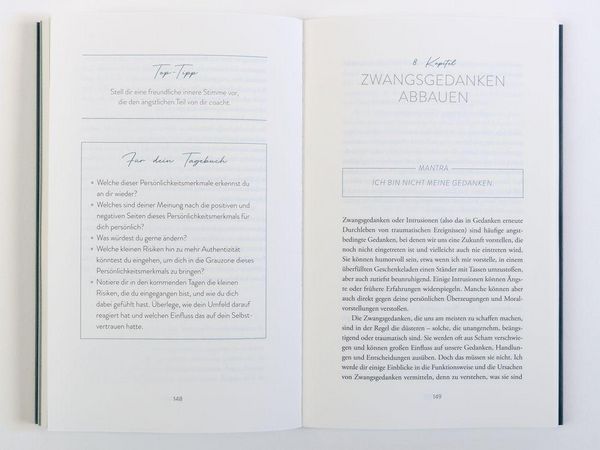 Top-Tipp
Stell dir eine freundliche innere Stimme vor,
die den ängstlichen Teil von dir coacht.
Für dein Tagebuch
• Welche dieser Persönlichkeitsmerkmale erkennst du
an dir wieder?
• Welches sind deiner Meinung nach die positiven und
negativen Seiten dieses Persönlichkeitsmerkmals für
dich persönlich?
• Was würdest du gerne ändern?
• Welche kleinen Risiken hin zu mehr Authentizität
könntest du eingehen, um dich in die Grauzone dieses
Persönlichkeitsmerkmals zu bringen?
• Notiere dir in den kommenden Tagen die kleinen
Risiken, die du eingegangen bist, und wie du dich
dabei gefühlt hast. Überlege, wie dein Umfeld darauf
reagiert hat und welchen Einfluss das auf dein Selbst-
vertrauen hatte.
148
8. Kapitel
ZWANGSGEDANKEN
ABBAUEN
MANTRA
ICH BIN NICHT MEINE GEDANKEN
Zwangsgedanken oder Intrusionen (also das in Gedanken erneute
Durchleben von traumatischen Ereignissen) sind häufige angst-
bedingte Gedanken, bei denen wir uns eine Zukunft vorstellen, die
noch nicht eingetreten ist und vielleicht auch nie eintreten wird.
Sie können humorvoll sein, etwa wenn ich mir vorstelle, in einem
überfüllten Geschenkeladen einen Ständer mit Tassen umzustoßen,
aber auch zutiefst beunruhigend. Einige Intrusionen können Ängs-
te oder frühere Erfahrungen widerspiegeln. Manche können aber
auch direkt gegen deine persönlichen Überzeugungen und Moral-
vorstellungen verstoßen.
Die Zwangsgedanken, die uns am meisten zu schaffen machen,
sind in der Regel die düsteren – solche, die unangenehm, beängs-
tigend oder traumatisch sind. Sie werden oft aus Scham verschwie-
gen und können großen Einfluss auf unsere Gedanken, Handlun-
gen und Entscheidungen ausüben. Doch das müssen sie nicht. Ich
werde dir einige Einblicke in die Funktionsweise und die Ursachen
von Zwangsgedanken vermitteln, denn zu verstehen, was sie sind
149